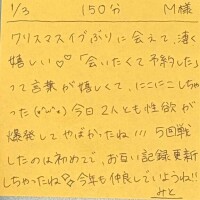 1/3 150分 M様
クリスマスイブぶりに会えて、凄く
嬉しい♡♡「会いたくて予約した」
って言葉が嬉しくて、にこにこしちゃ
った(๑'ᴗ'๑)今日2人とも性欲が
爆発してやばかったね!!! 5回戦
したのは初めてで、お互い記録更新
しちゃったね 今年も仲良しでいようね!!
みと